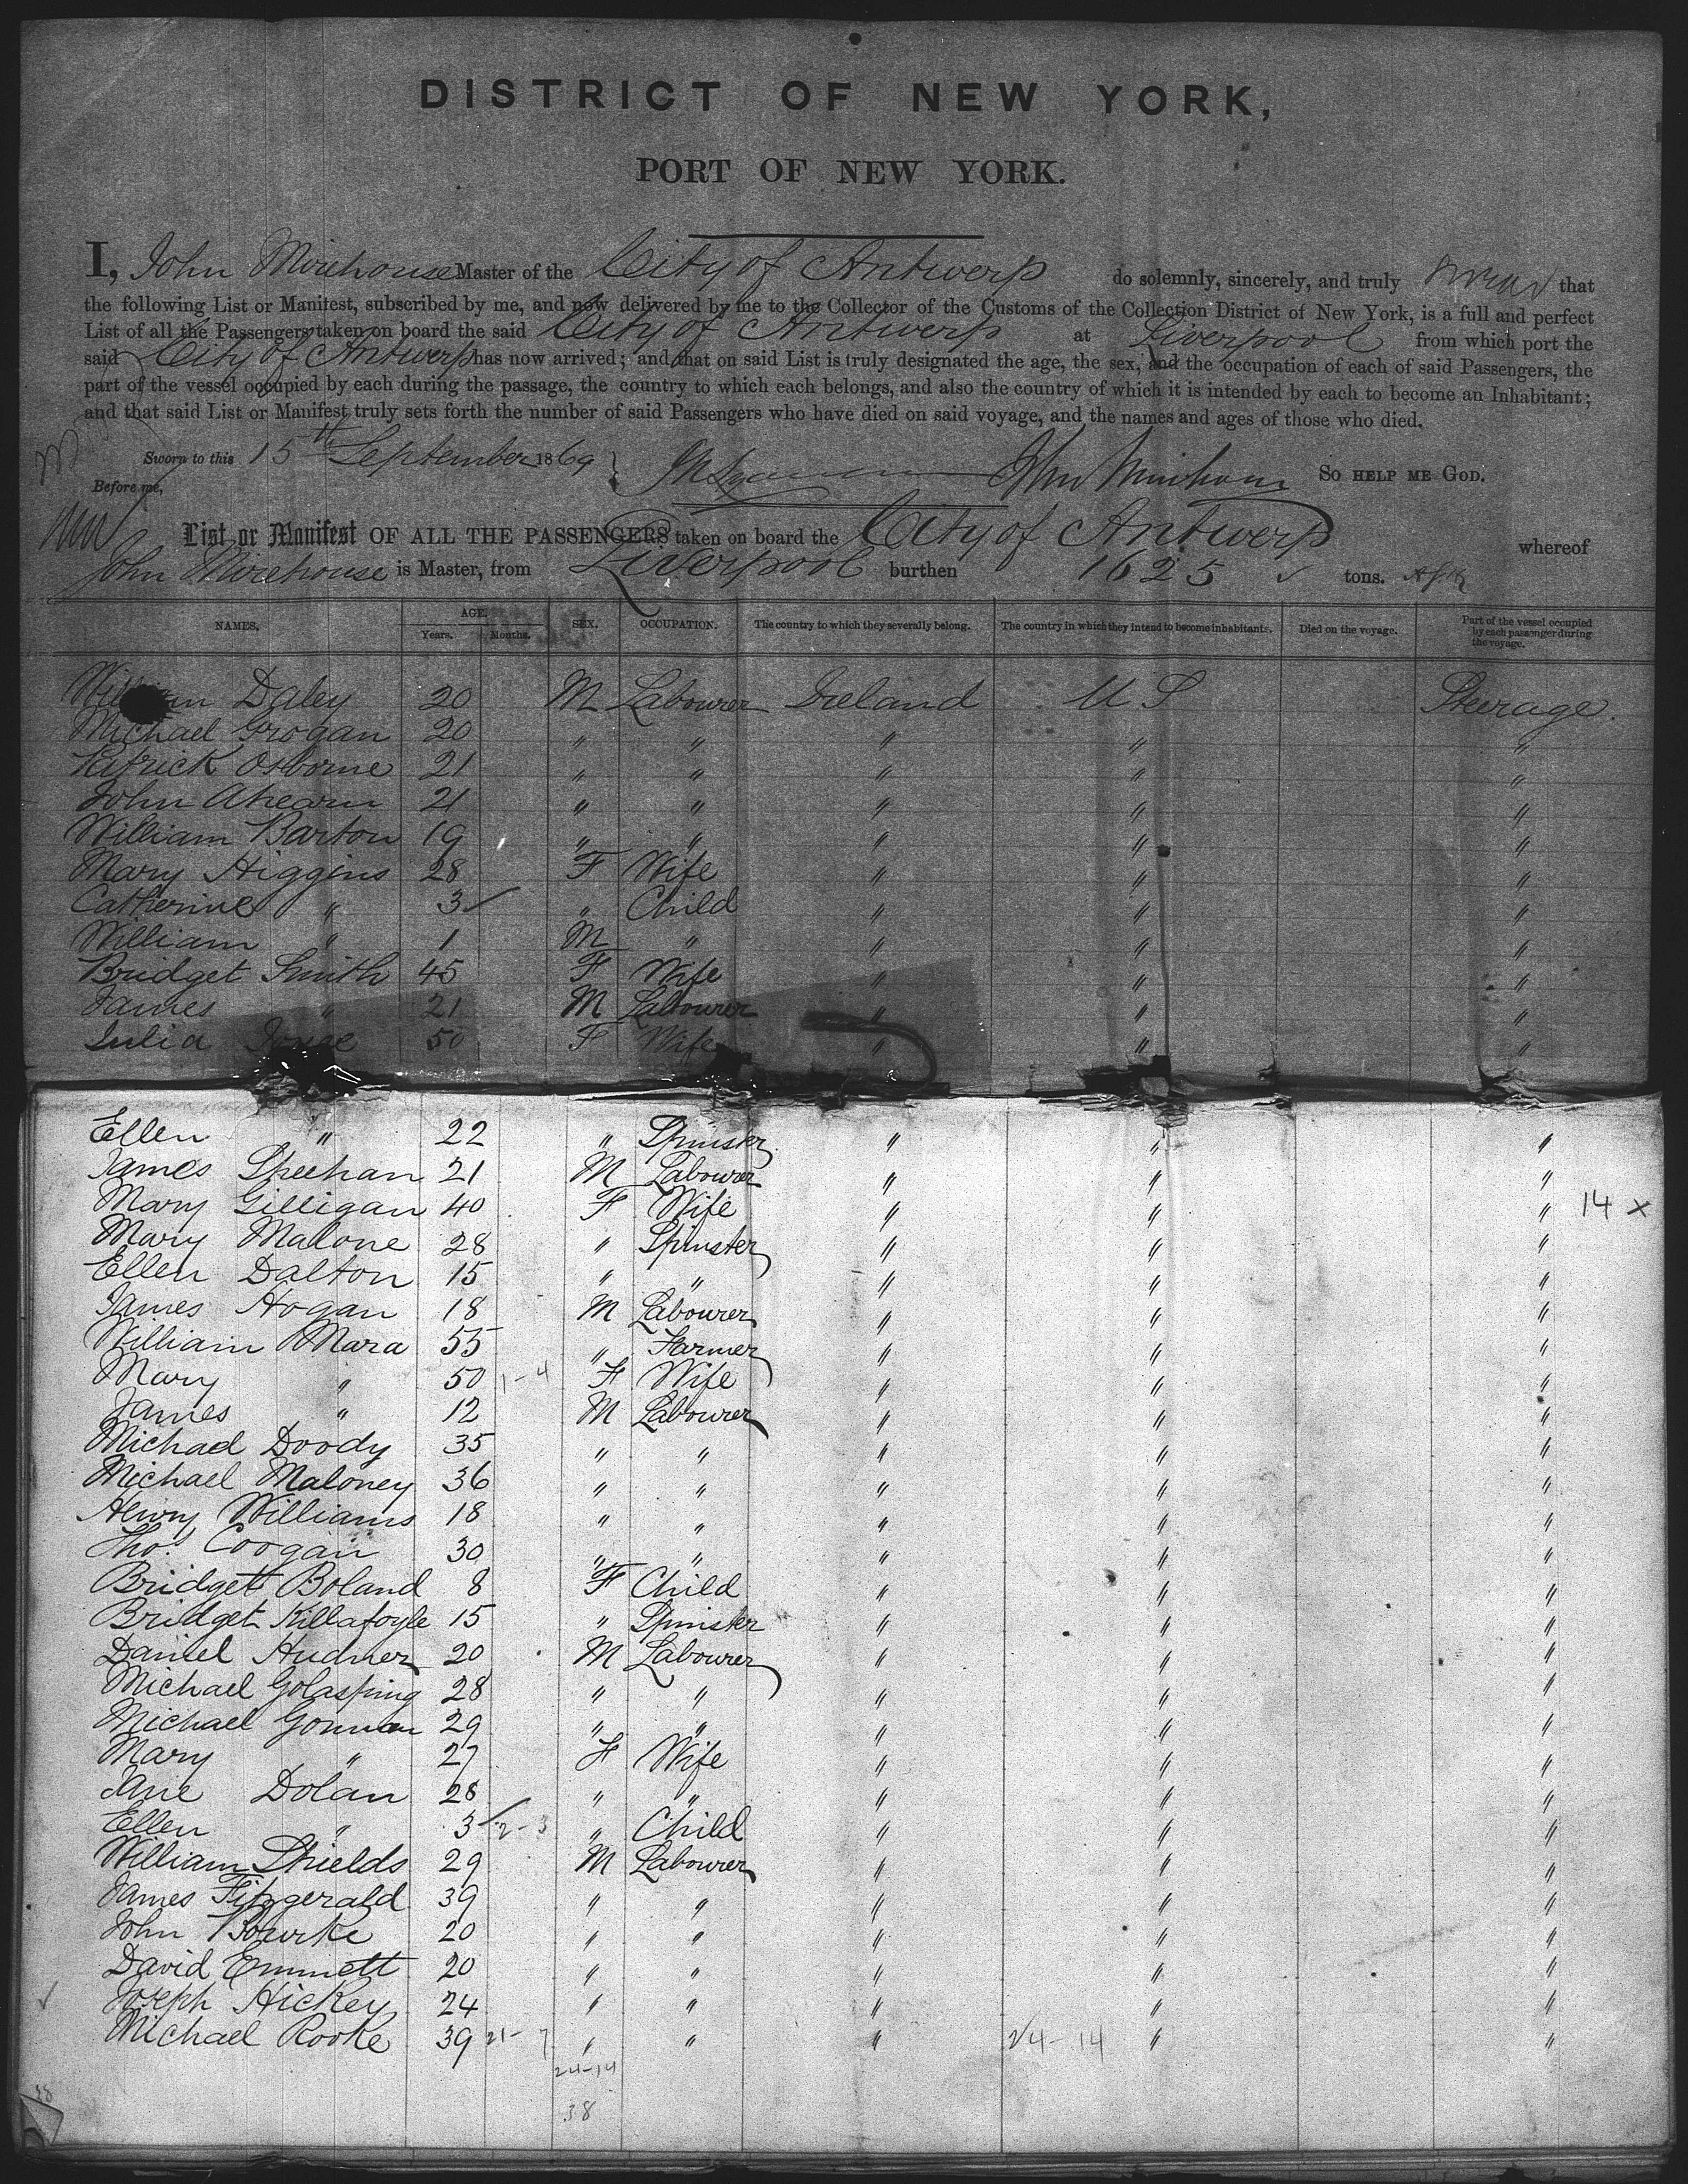 DISTRICT OF NEW YORK,
PORT OF NEW YORK.
I, John Mirehouse Master of the City of Antwerp do solemnly, sincerely, and truly swear that
the following List or Manifest, subscribed by me, and now delivered by me to the Collector of the Customs of the Collection District of New York, is a full and perfect
List of all the Passengers taken on board the said City of Antwerp at Liverpool from which port the
said City of Antwerp has now arrived; and that on said List is truly designated the age, the sex, and the occupation of each of said Passengers, the
part of the vessel occupied by each during the passage, the country to which each belongs, and also the country of which it is intended by each to become an Inhabitant;
and that said List or Manifest truly sets forth the number of said Passengers who have died on said voyage, and the names and ages of those who died.
Sworn to this 15th September 1869 John Mirehouse SO HELP ME GOD.
Before me,
List or Manifest OF ALL THE PASSENGERS taken on board the City of Antwerp whereof
John Mirehouse is Master, from Liverpool burthen 1625 tons.
NAMES. AGE. Years. Months. SEX. OCCUPATION. The country to which they severally belong. The country in which they intend to become inhabitants. Died on the voyage. Part of the vessel occupied by each passenger during the voyage.
William Daley 20 M Labourer Ireland U S Steerage.
Michael Grogan 20 " " " " "
Patrick Osborne 21 " " " " "
John Ahearn 21 " " " " "
William Barton 19 " " " " "
Mary Higgins 28 F Wife " " "
Catherine " 3 " Child " " "
William " 1 M " " " "
Bridget Smith 45 F Wife " " "
James " 21 M Labourer " " "
Julia Joyce 50 F Wife " " "
Ellen " 22 " Spinster " " "
James Sheehan 21 M Labourer " " "
Mary Gilligan 40 F Wife " " " 14 x
Mary Malone 28 " Spinster " " "
Ellen Dalton 15 " " " " "
James Hogan 18 M Labourer " " "
William Mara 55 " Farmer " " "
Mary " 50 1-4 F Wife " " "
James " 12 M Labourer " " "
Michael Doody 35 " " " " "
Michael Maloney 36 " " " " "
Henry Williams 18 " " " " "
Thos. Coogan 30 " " " " "
Bridgett Boland 8 F Child " " "
Bridget Killafoyle 15 " Spinster " " "
Daniel Hudner 20 M Labourer " " "
Michael Golasping 28 " " " " "
Michael Gorman 29 " " " " "
Mary " 27 F Wife " " "
Jane Dolan 28 " " " " "
Ellen " 3 2-3 " Child " " "
William Shields 29 M Labourer " " "
James Fitzgerald 39 " " " " "
John Bourke 20 " " " " "
David Emmett 20 " " " " "
Joseph Hickey 24 " " " " "
Michael Rooke 39 21-7 " " " 24-14 " "
24-14
38